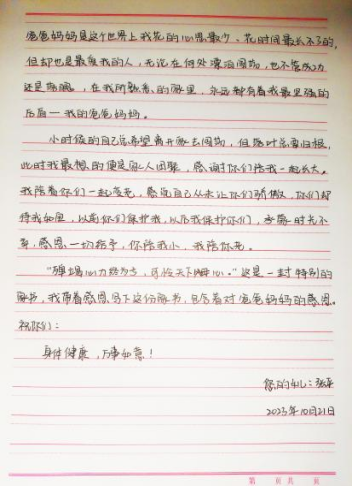 爸爸妈妈是这个世界上我花的心思最少、花时间最长不了的，
但却也是最爱我的人，无论在何处漂泊闯荡，也不管成功
还是，在我所的家里，永远都有着我最坚强的
后盾—我的爸爸妈妈。
小时候的自己总希望离开家去闯荡，但落叶总要归根，
此时我最想的便是家人团聚，感谢你们陪我一起长大。
我陪着你们一起变老，感觉自己从未让你们骄傲，你们却
待我如，以前你们保护我，以后我保护你们，时光不
，感恩一切，你陪我小，我陪你老。
“殚竭心力终为子，可怜天下父母心。”这是一封特别的
家书，我带着感恩写下这份家书，包含着对爸爸妈妈的感恩。
祝你们：
身体健康，万事如意！
您的女儿：
2023年10月21日
第 页 共 页